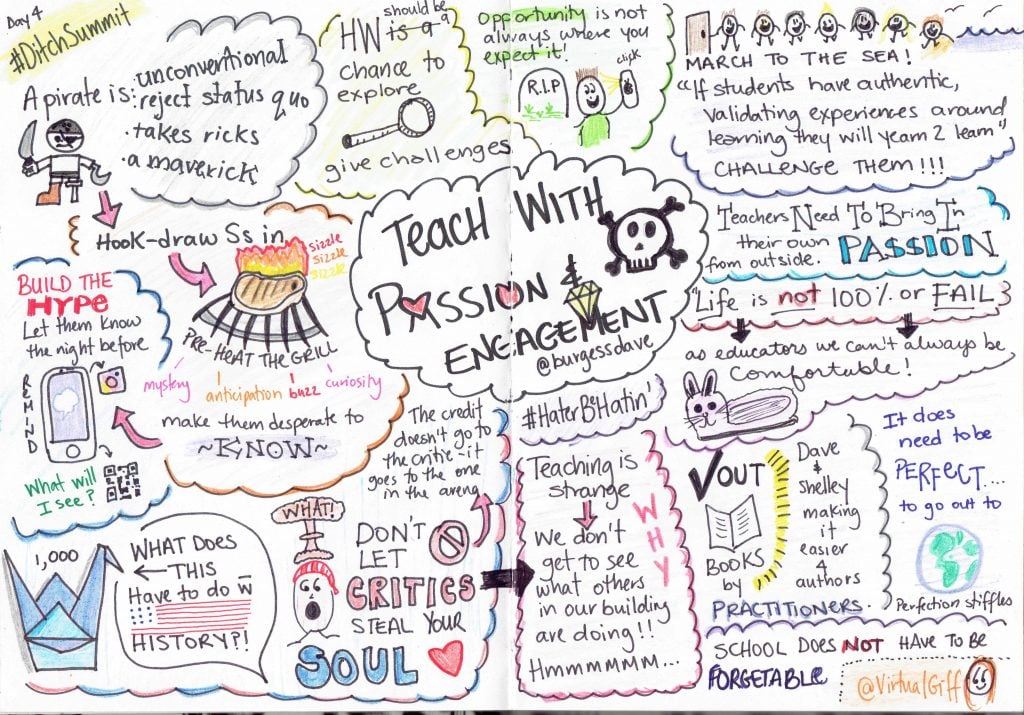 Day 4
#DitchSummit
A pirate is:
·unconventional
·reject status quo
·takes ricks
·a maverick
should be
HW is a a
chance to
explore
give challenges
Opportunity is not
always where you
expect it!
R.I.P
click
MARCH TO THE SEA!
"If students have authentic,
validating experiences around
learning they will yearn 2 learn"
CHALLENGE THEM!!!
Teach With
Passion &
ENGAGEMENT
@burgessdave
Teachers Need To Bring In
their own PASSION
from outside.
"Life is not 100% or FAIL}
as educators we can't always be
comfortable!
Hook-draw Ss in
sizzle
sizzle
sizzle
PRE-HEAT THE GRILL
mystery
anticipation
buzz
curiosity
make them desperate to
~KNOW~
BUILD THE
HYPE
Let them know
the night before
REMIND
What will
I see?
1,000
WHAT DOES
THIS
Have to do w̅
HISTORY?!
WHAT!
DON'T
LET
CRITICS
STEAL YOUR
SOUL
The credit
doesn't go to
the critic-it
goes to the one
in the arena
#HaterBeHatin'
Teaching is
strange
We don't
get to see
what others
in our building
are doing!!
Hmmmmmm...
WHY
VOUT
BOOKS
by
PRACTITIONERS.
Dave
&
Shelley
making
it
easier
4
authors
It does
need to be
PERFECT...
to go out to
Perfection stiffles
SCHOOL DOES NOT HAVE TO BE
FORGETABLE
@VirtualGiff